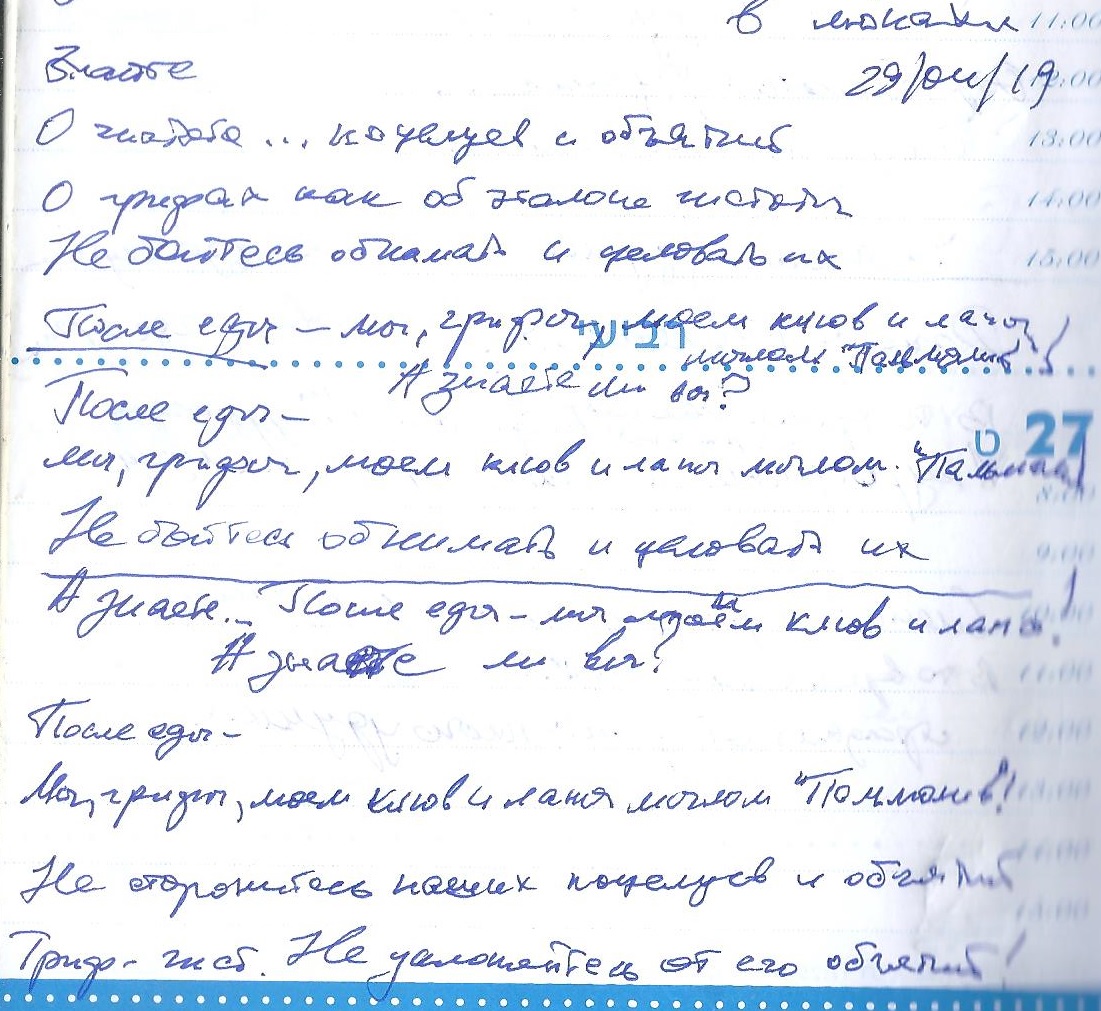 в
11:00
Знаете
29/
О чистоте ... поцелуев и объятий
13:00
О грифах как об эталоне чистоты
14:00
Не бойтесь обнимать и целовать их
15:00
После еды – мы, грифы, моем клюв и лапы
רביעי
мылом "Пальмолив"!
А знаете ли вы?
После еды –
ט 27
мы, грифы, моем клюв и лапы мылом "Пальмолив"
8:00
Не бойтесь обнимать и целовать их
9:00
А знаете... После еды – мы моем клюв и лапы!
А знаете ли вы?
11:00
После еды –
12:00
Мы, грифы, моем клюв и лапы мылом "Пальмолив"!
13:00
Не сторонитесь наших поцелуев и объятий
15:00
Гриф – чист. Не уклоняйтесь от его объятий!